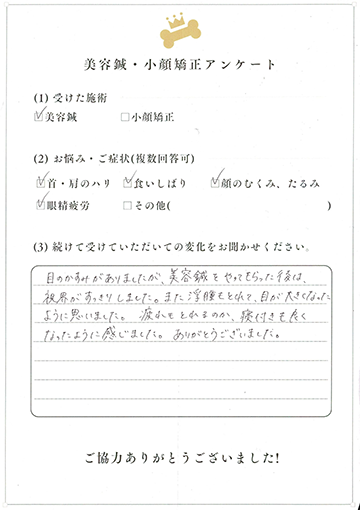 美容鍼・小顔矯正アンケート
(1) 受けた施術
☑美容鍼 □小顔矯正
(2) お悩み・ご症状(複数回答可)
☑首・肩のハリ ☑食いしばり ☑顔のむくみ、たるみ
☑眼精疲労 □その他( )
(3) 続けて受けていただいての変化をお聞かせください。
目のかすみがありましたが、美容鍼をやってもらった後は、
視界がすっきりしました。また浮腫もとれて、目が大きくなった
ように思いました。 疲れもとれるのか、寝付きも良く
なったように感じました。 ありがとうございました。
ご協力ありがとうございました!